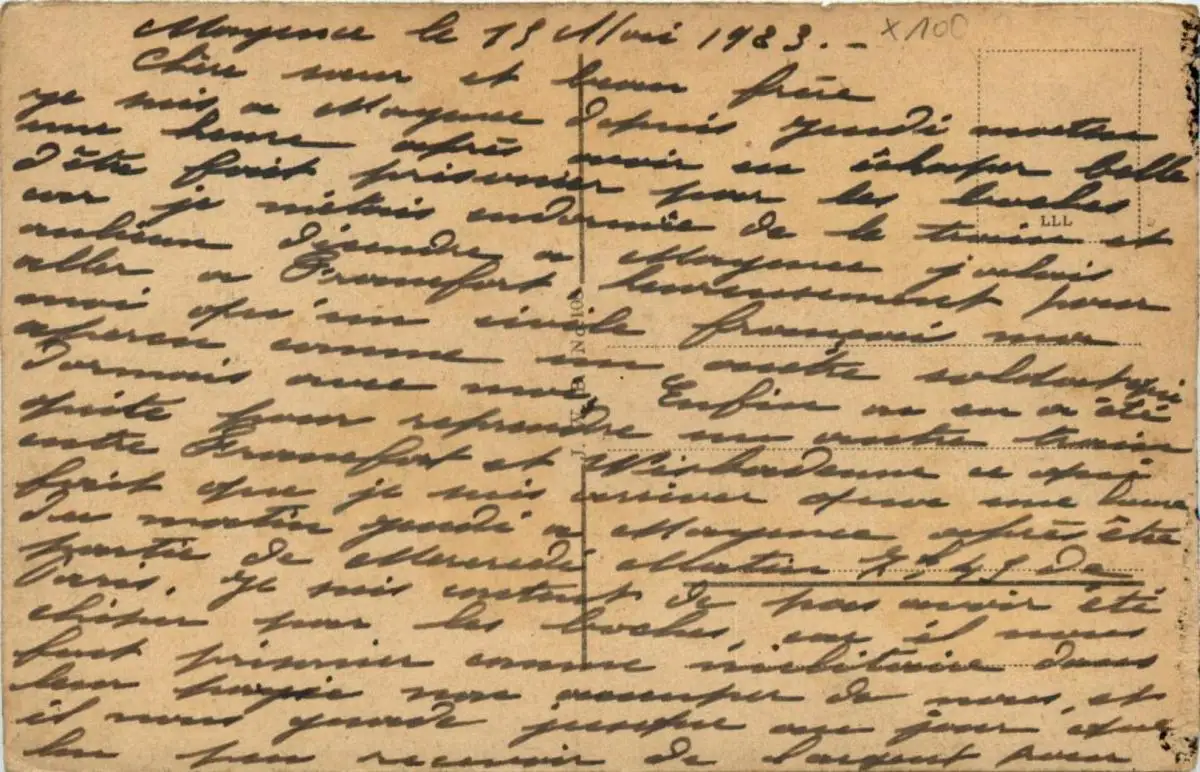 Mayence le 15 Mai 1923.- x100
Chère sœur et beau frère
Je suis a Mayence depuis jeudi matin
une heure après avoir eu échaper belle
d'être fait prisonier par les boches
car je m'étais endormie de le train et
aulieu disendre a Mayence jalais
LLL
aller a Francfort heureusement pour
moi qu'un civile français ma
aperçu comme un autre soldat qui
dormais avec moi. Enfin on en a été
quite pour reprendre un autre train
entre Francfort et Wisbadenne ce qui
fait que je suis arriver que une heure
du matin jeudi a Mayence après être
partie de Mercredi Matin 7h45 de
Paris. Je suis content de pas avoir été
chiper par les boches, car il nous
fait prisonier comme militaire dans
leur payie non ocuuper de nous, et
il nous garde jusque au jour que
lon peu recevoir de largent pour